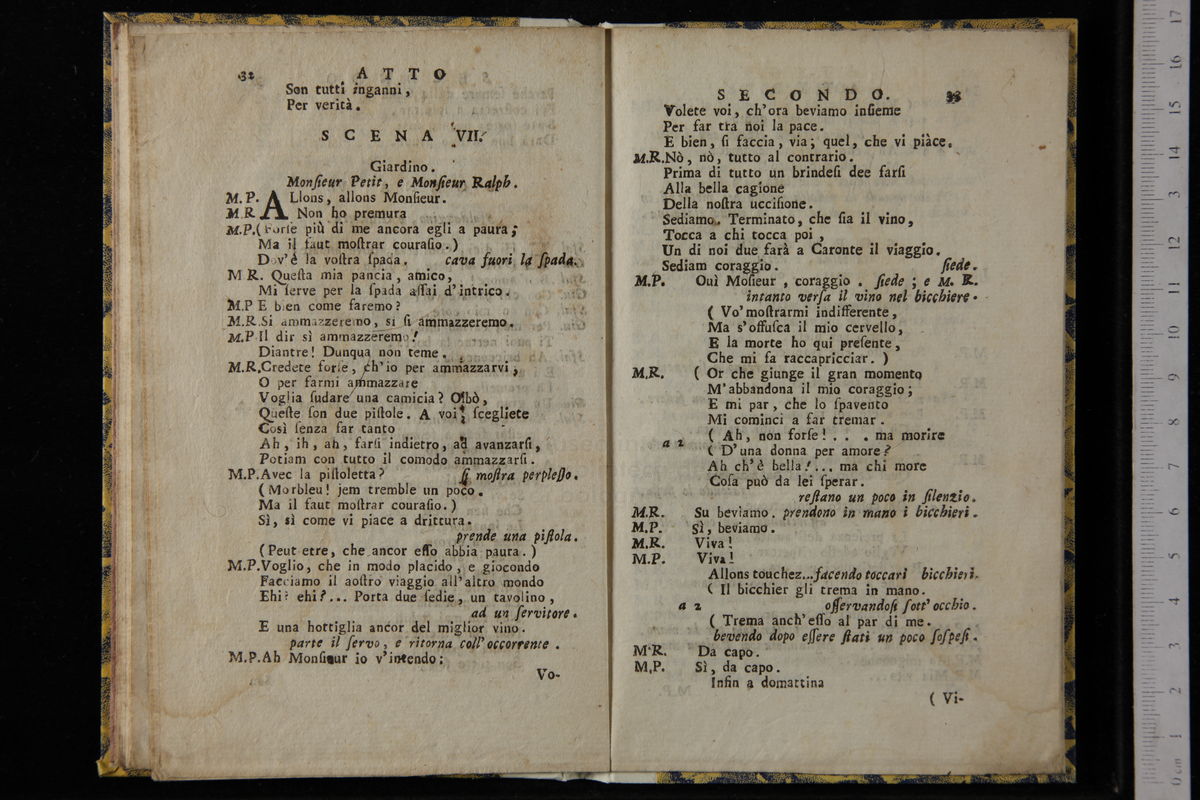 32 ATTO
Son tutti inganni,
Per verità.
SCENA VII.
Giardino.
Monſieur Petit, e Monſieur Ralph.
M.P. ALlons, allons Monſieur.
M.R Non ho premura
M.P.(Forſe più di me ancora egli a paura;
Ma il faut moſtrar couraſio.)
Dov'è la voſtra ſpada. cava fuori la ſpada.
M R. Queſta mia pancia, amico,
Mi ſerve per la ſpada aſſai d'intrico.
M.P E bien come faremo?
M.R.Si ammazzeremo, si ſi ammazzeremo.
M.P Il dir sì ammazzeremo!
Diantre! Dunqua non teme.
M.R.Credete forſe, ch'io per ammazzarvi,
O per farmi ammazzare
Voglia ſudare una camicia? Oibò,
Queſte ſon due piſtole. A voi; ſcegliete
Così ſenza far tanto
Ah, ih, ah, farſi indietro, ad avanzarſi,
Potiam con tutto il comodo ammazzarſi.
M.P.Avec la piſtoletta? ſi moſtra perpleſſo.
(Morbleu! jem tremble un poco.
Ma il faut moſtrar couraſio.)
Sì, sì come vi piace a drittura.
prende una piſtola.
(Peut etre, che ancor eſſo abbia paura.)
M.P.Voglio, che in modo placido, e giocondo
Facciamo il aoſtro viaggio all'altro mondo
Ehi? ehi?... Porta due ſedie, un tavolino,
ad un ſervitore.
E una hottiglia ancor del miglior vino.
parte il ſervo, e ritorna coll'occorrente.
M.P.Ah Monſieur io v'intendo:
Vo-
SECONDO. 33
Volete voi, ch'ora beviamo inſieme
Per far tra noi la pace.
E bien, ſi faccia, via; quel, che vi piàce.
M.R.Nò, nò, tutto al contrario.
Prima di tutto un brindeſi dee farſi
Alla bella cagione
Della noſtra ucciſione.
Sediamo. Terminato, che ſia il vino,
Tocca a chi tocca poi,
Un di noi due farà a Caronte il viaggio.
Sediam coraggio. ſiede.
M.P. Ouì Moſieur, coraggio. ſiede; e M. R.
intanto verſa il vino nel bicchiere.
( Vo'moſtrarmi indifferente,
Ma s'offuſca il mio cervello,
E la morte ho qui preſente,
Che mi fa raccapricciar. )
M.R. ( Or che giunge il gran momento
M'abbandona il mio coraggio;
E mi par, che lo ſpavento
Mi cominci a far tremar.
( Ah, non forſe! . . . ma morire
a 2
( D'una donna per amore?
Ah ch'è bella!... ma chi more
Coſa può da lei ſperar.
reſtano un poco in ſilenzio.
M.R. Su beviamo. prendono in mano i bicchieri.
M.P. Sì, beviamo.
M.R. Viva!
M.P. Viva!
Allons touchez...facendo toccari bicchieri.
( Il bicchier gli trema in mano.
a 2 oſſervandoſi ſott'occhio.
( Trema anch'eſſo al par di me.
bevendo dopo eſſere ſtati un poco ſoſpeſi.
M.R. Da capo.
M.P. Sì, da capo.
Infin a domattina
( Vi-